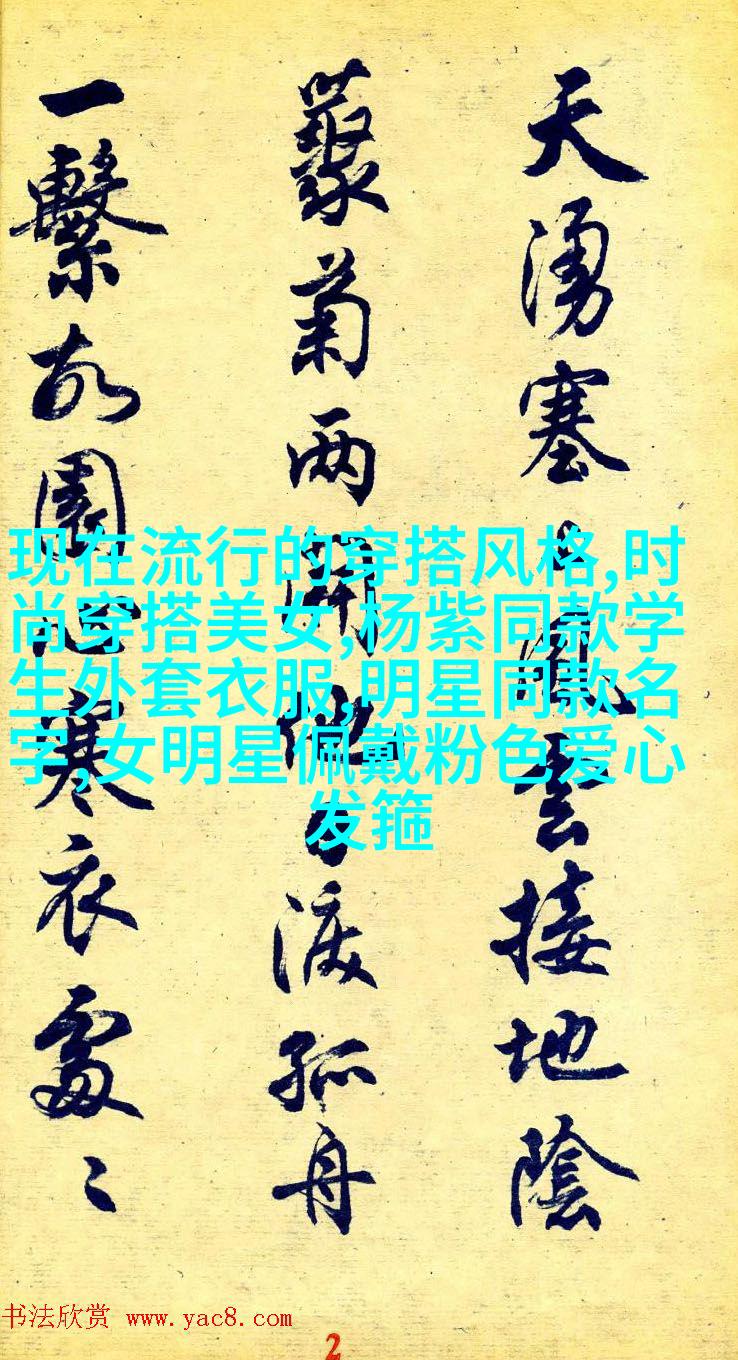 天湧塞上風雲接地陰
叢菊两開他日淚孤舟
一繫故園心寒衣處〻
现在流行的穿搭风格,时
尚穿搭美女,杨紫同款学
生外套衣服,明星同款名
字,女明星佩戴粉色爱心
发箍
书法欣赏 www.yac8.com
2